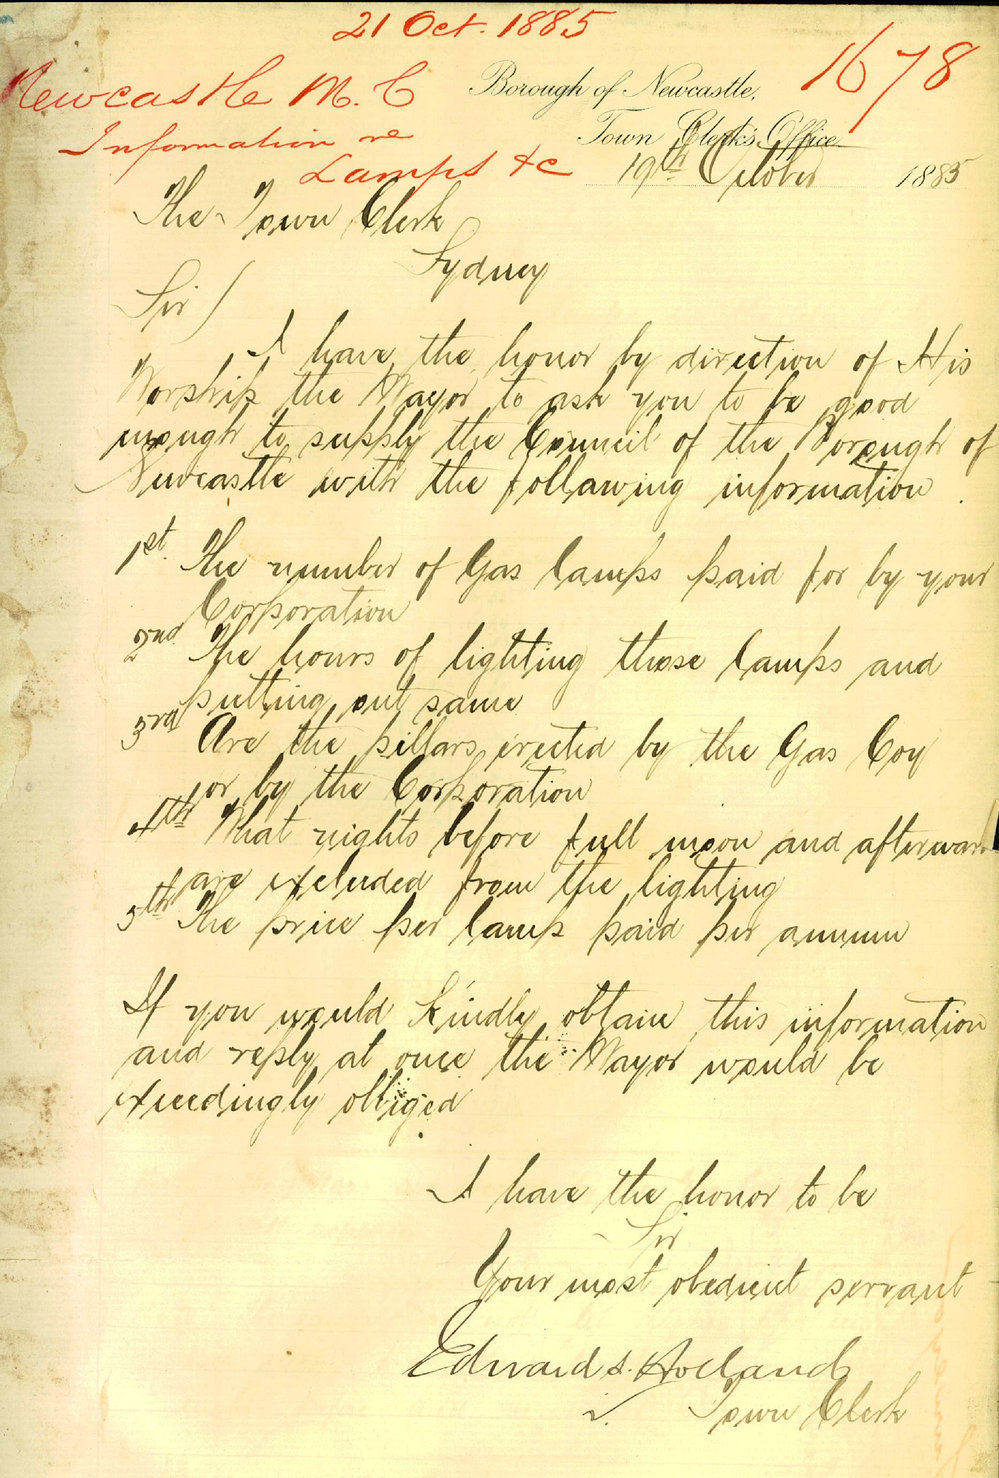 21 Oct. 1885
1678
Newcastle M. C
Information re
Lamps &c
Borough of Newcastle,
Town Clerk's Office
19th October 1885
The Town Clerk
Sydney
Sir /
I have the honor by direction of His
Worship the Mayor to ask you to be good
enough to supply the Council of the Borough of
Newcastle with the following information.
1st. The number of Gas lamps paid for by your
Corporation
2nd. The hours of lighting those lamps and
putting out same
3rd Are the pillars erected by the Gas Coy
or by the Corporation
4th What nights before full moon and afterward
are excluded from the lighting
5th The price per lamp paid per annum
If you would kindly obtain this information
and reply at once the Mayor would be
exceedingly obliged
I have the honor to be
Sir
Your most obedient servant
Edward S. Holland
Town Clerk